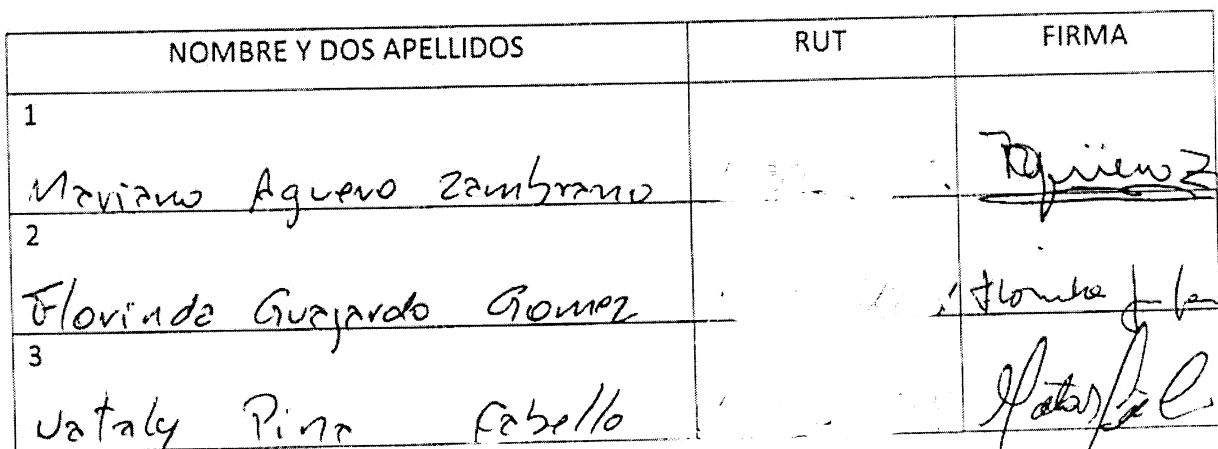 NOMBRE Y DOS APELLIDOS RUT FIRMA
1
Mariano Aguero Zambrano Aguero Z
2
Florinda Guajardo Gomez
3
Nataly Pina Cabello